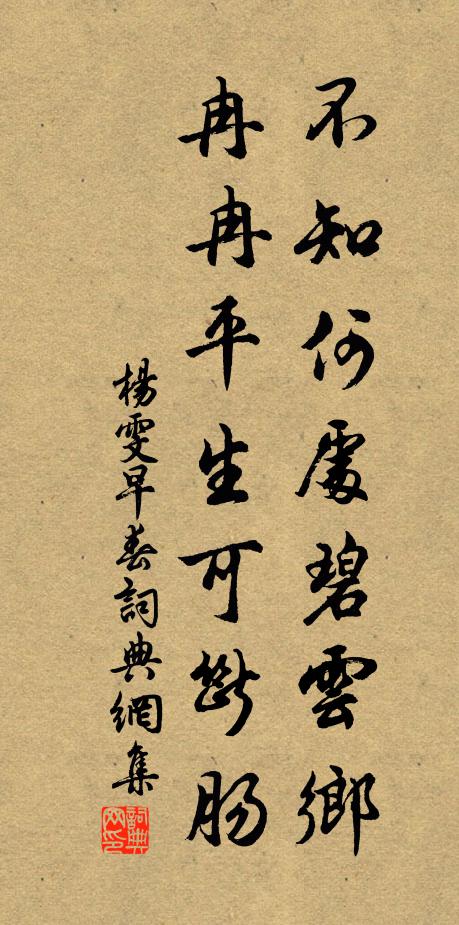 不知何處碧雲鄉
冉冉平生可斷腸
楊雯早春詞典網集
詞典网印